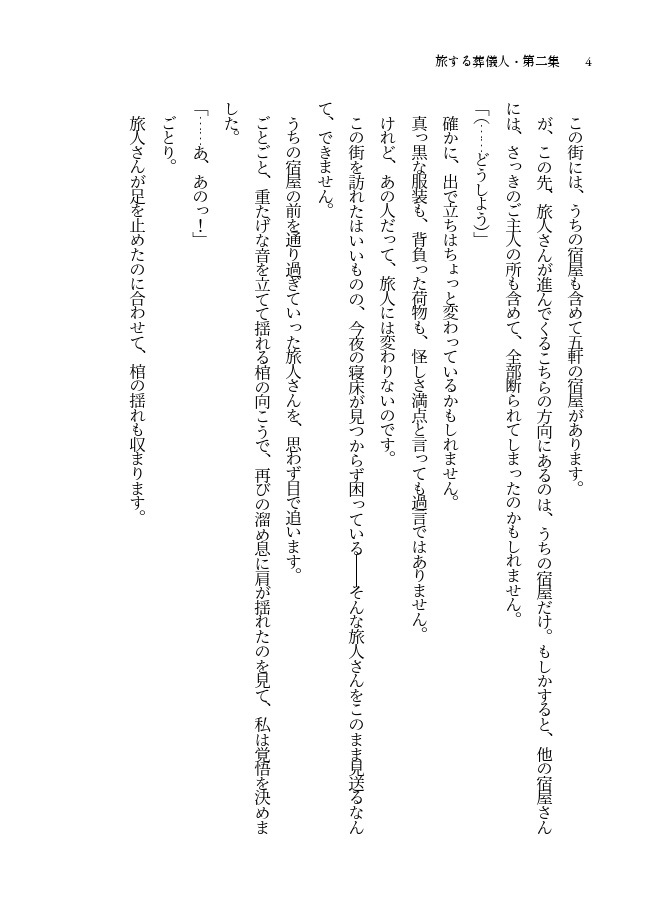 旅する葬儀人・第二集　4
この街には、うちの宿屋も含めて五軒の宿屋があります。
が、この先、旅人さんが進んでくるこちらの方向にあるのは、うちの宿屋だけ。もしかすると、他の宿屋さん
には、さっきのご主人の所も含めて、全部断られてしまったのかもしれません。
「（……どうしよう）」
確かに、出で立ちはちょっと変わっているかもしれません。
真っ黒な服装も、背負った荷物も、怪しさ満点と言っても過言ではありません。
けれど、あの人だって、旅人には変わりないのです。
この街を訪れたはいいものの、今夜の寝床が見つからず困っている――そんな旅人さんをこのまま見送るなん
て、できません。
うちの宿屋の前を通り過ぎていった旅人さんを、思わず目で追います。
ごとごと、重たげな音を立てて揺れる棺の向こうで、再びの溜め息に肩が揺れたのを見て、私は覚悟を決めま
した。
「……あ、あのっ！」
ごとり。
旅人さんが足を止めたのに合わせて、棺の揺れも収まります。